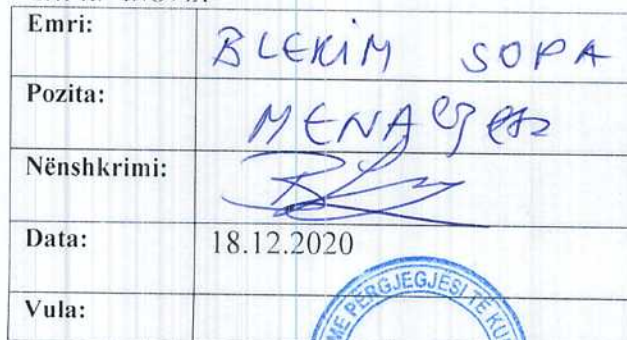 Emri: BLERIM SOPA
Pozita: MENAGJER
Nënshkrimi:
Data: 18.12.2020
Vula:
ME PERGJEGJESI TE KU